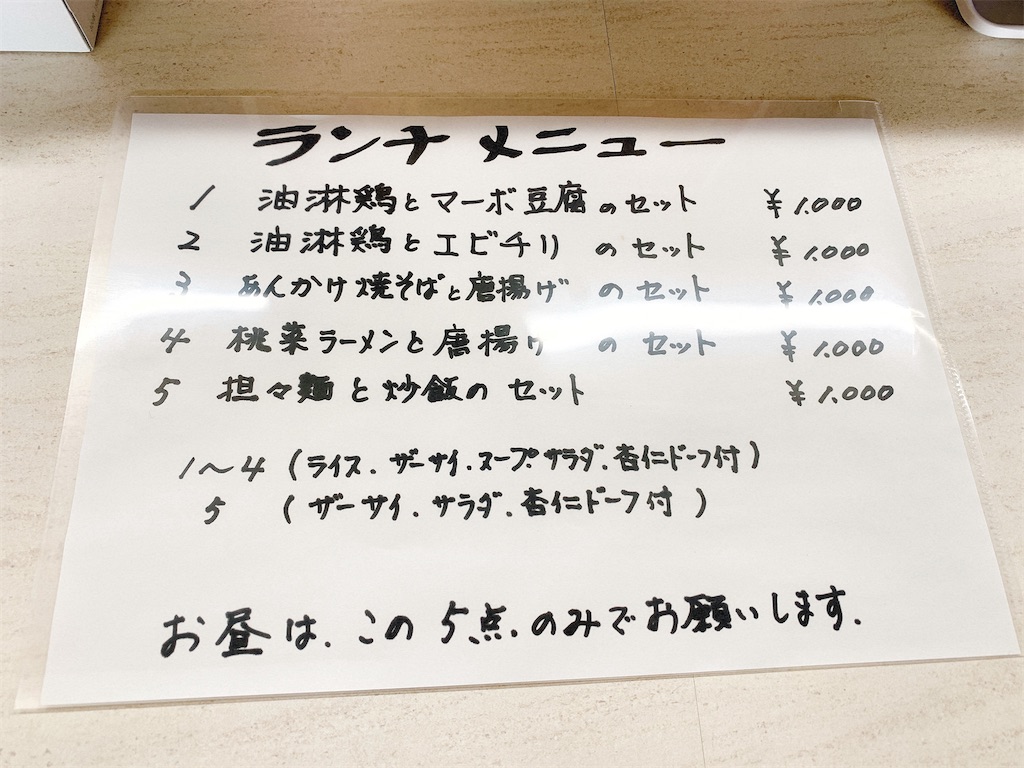 ランチメニュー
1 油淋鶏とマーボ豆腐のセット ¥1.000
2 油淋鶏とエビチリのセット ¥1.000
3 あんかけ焼そばと唐揚げのセット ¥1.000
4 桃菜ラーメンと唐揚げのセット ¥1.000
5 担々麺と炒飯のセット ¥1.000
1〜4 (ライス.ザーサイ.スープ.サラダ.杏仁ドーフ付)
5 (ザーサイ.サラダ.杏仁ドーフ付)
お昼は、この5点.のみでお願いします.